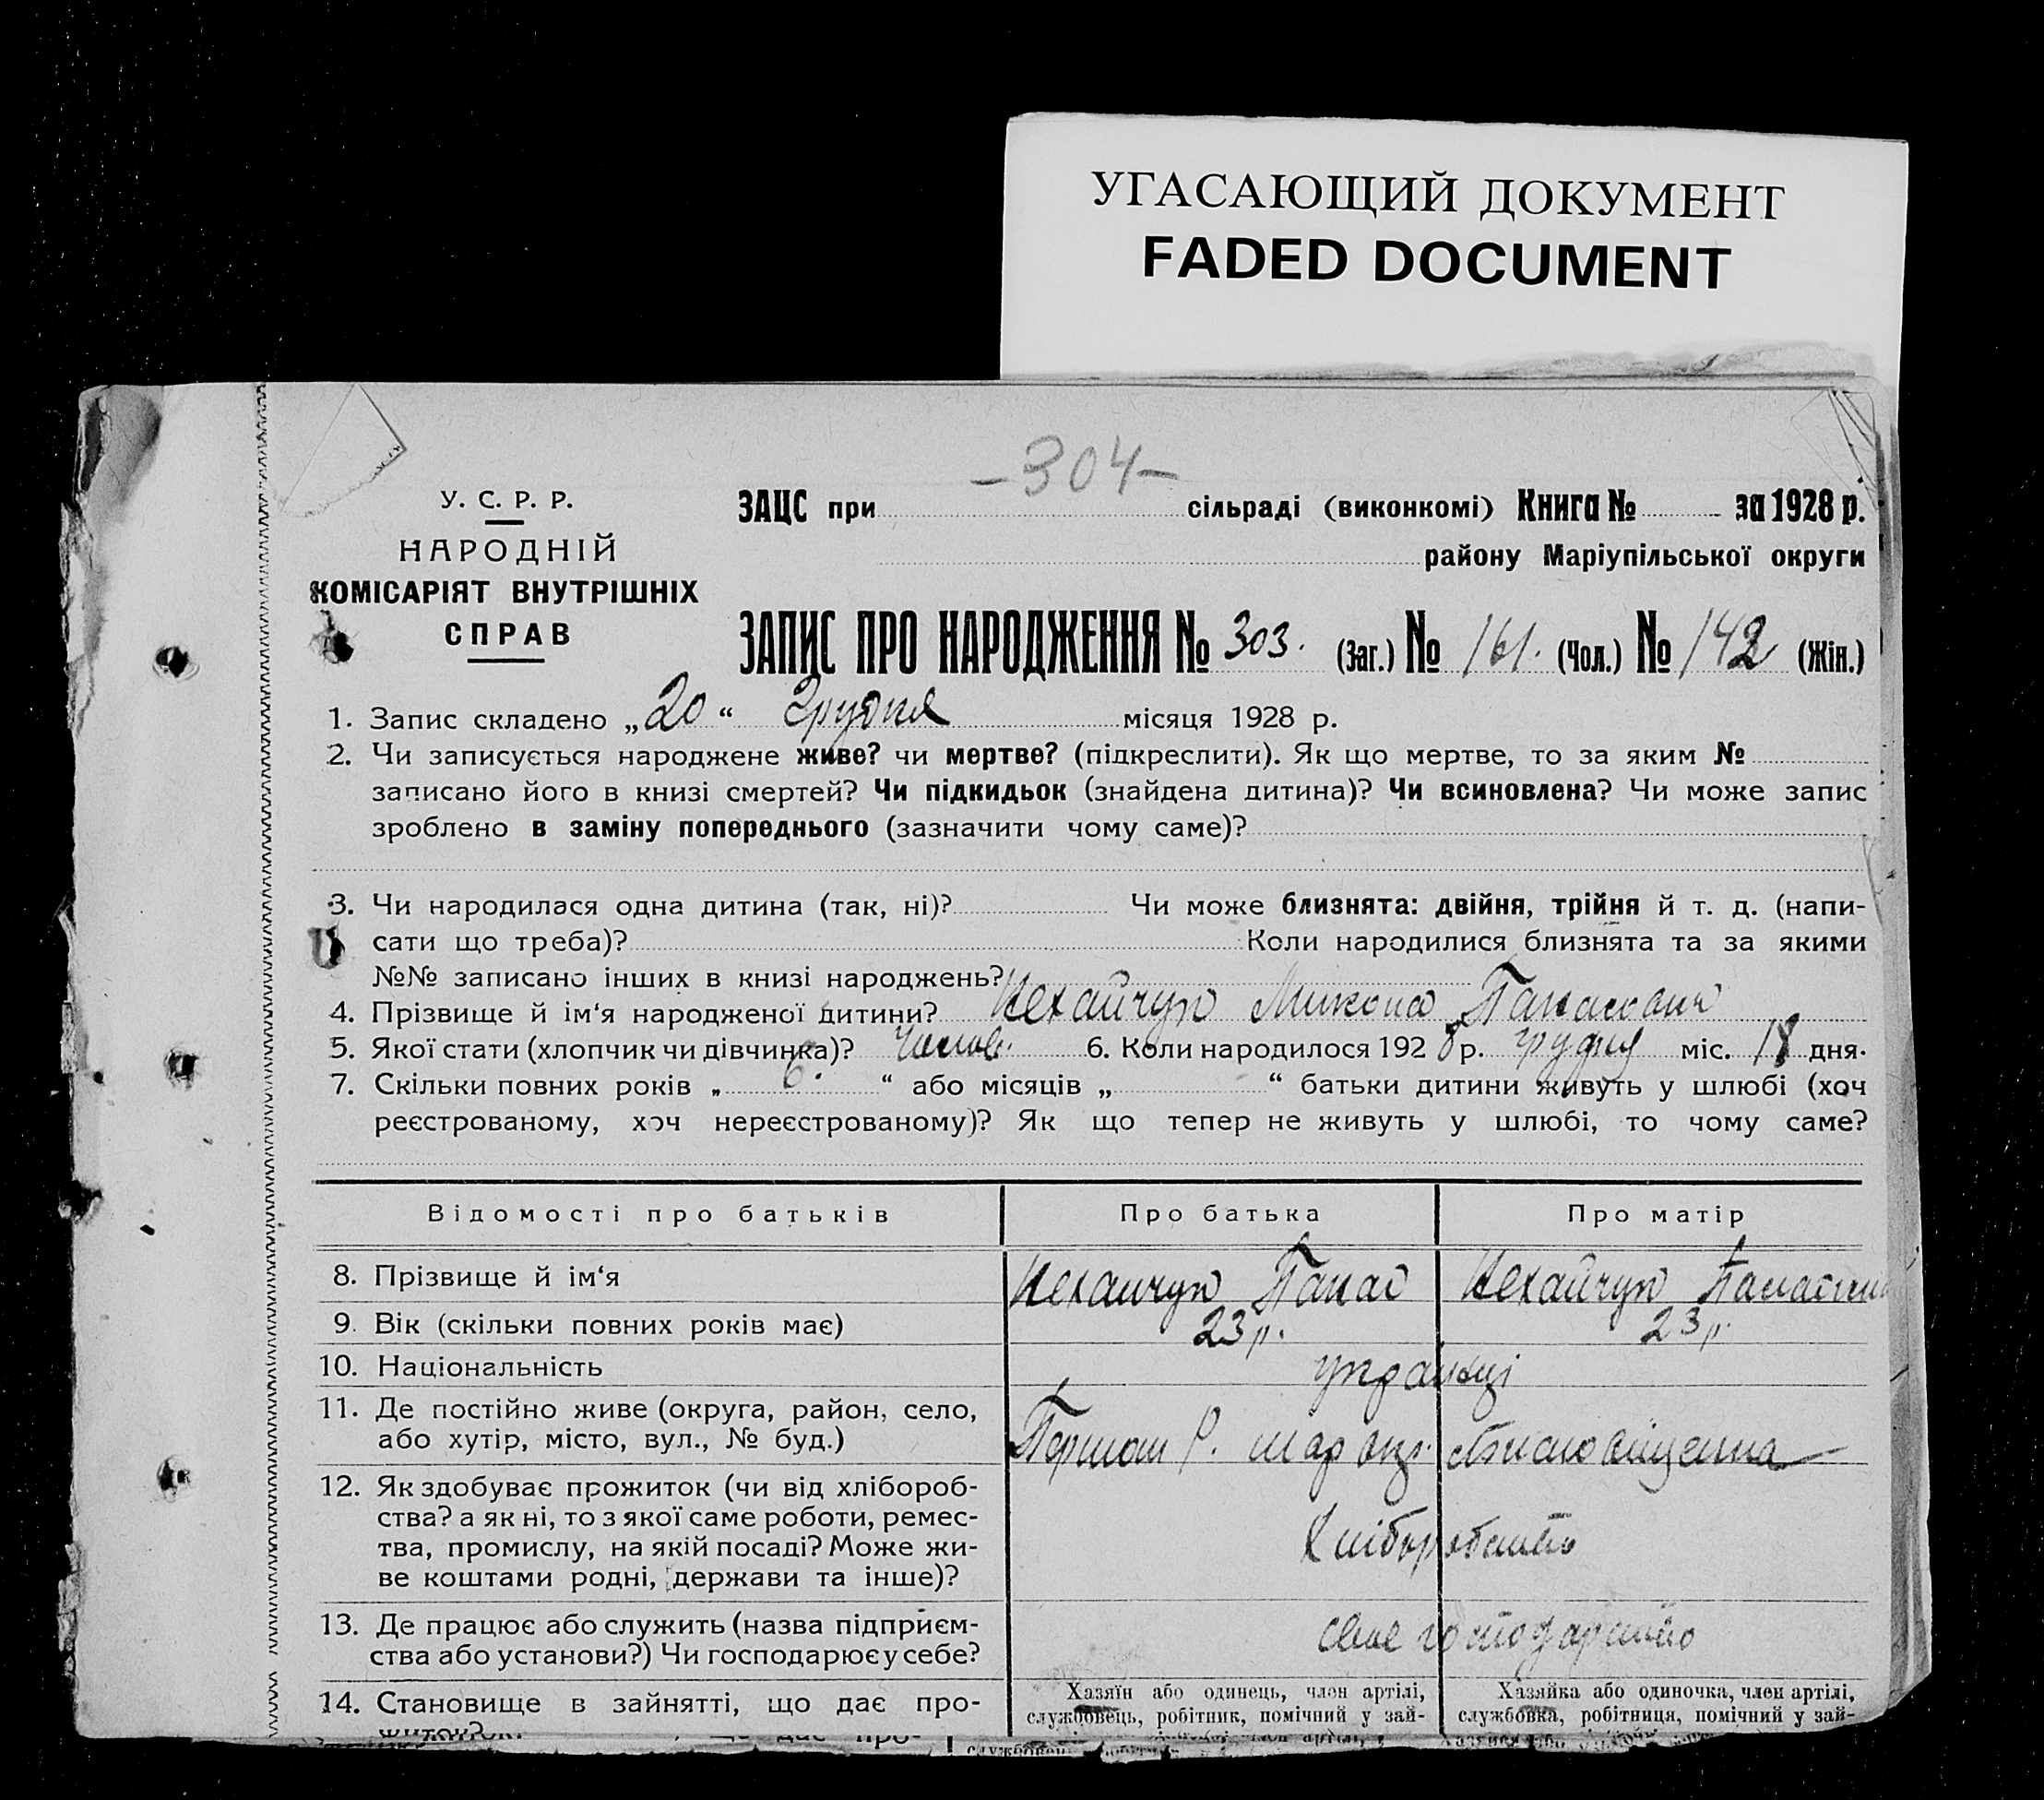 УГАСАЮЩИЙ ДОКУМЕНТ
FADED DOCUMENT
-304-
У. С. Р. Р.
НАРОДНІЙ
КОМІСАРІЯТ ВНУТРІШНІХ
СПРАВ
ЗАЦС при сільраді (виконкомі) Книга № за 1928 р.
району Маріупільської округи
ЗАПИС ПРО НАРОДЖЕННЯ № 303. (Заг.) № 161. (Чол.) № 142 (Жін.)
1. Запис складено „20“ Грудня місяця 1928 р.
2. Чи записується народжене живе? чи мертве? (підкреслити). Як що мертве, то за яким №
записано його в книзі смертей? Чи підкидьок (знайдена дитина)? Чи всиновлена? Чи може запис
зроблено в заміну попереднього (зазначити чому саме)?
3. Чи народилася одна дитина (так, ні)? Чи може близнята: двійня, трійня й т. д. (напи-
сати що треба)? Коли народилися близнята та за якими
№№ записано інших в книзі народжень?
4. Прізвище й ім‘я народженої дитини? Нехайчук Микола
5. Якої стати (хлопчик чи дівчинка)? Чолов. 6. Коли народилося 1928 р. грудня міс. 18 дня.
7. Скільки повних років „ 6. “ або місяців „ “ батьки дитини живуть у шлюбі (хоч
реєстрованому, хоч нереєстрованому)? Як що тепер не живуть у шлюбі, то чому саме?
Відомості про батьків Про батька Про матір
8. Прізвище й ім‘я Нехайчук Панас Нехайчук
9. Вік (скільки повних років має) 23 р. 23 р.
10. Національність українці
11. Де постійно живе (округа, район, село,
або хутір, місто, вул., № буд.)
12. Як здобуває прожиток (чи від хлібороб-
ства? а як ні, то з якої саме роботи, ремес-
тва, промислу, на якій посаді? Може жи-
ве коштами родні, держави та інше)?
Хліборобство
13. Де працює або служить (назва підприєм-
ства або установи?) Чи господарює у себе?
своє господарство
14. Становище в зайнятті, що дає про-
житок?
Хазяїн або одинець, член артілі,
службовець, робітник, помічний у зай-
Хазяйка або одиночка, член артілі,
службовка, робітниця, помічний у зай-